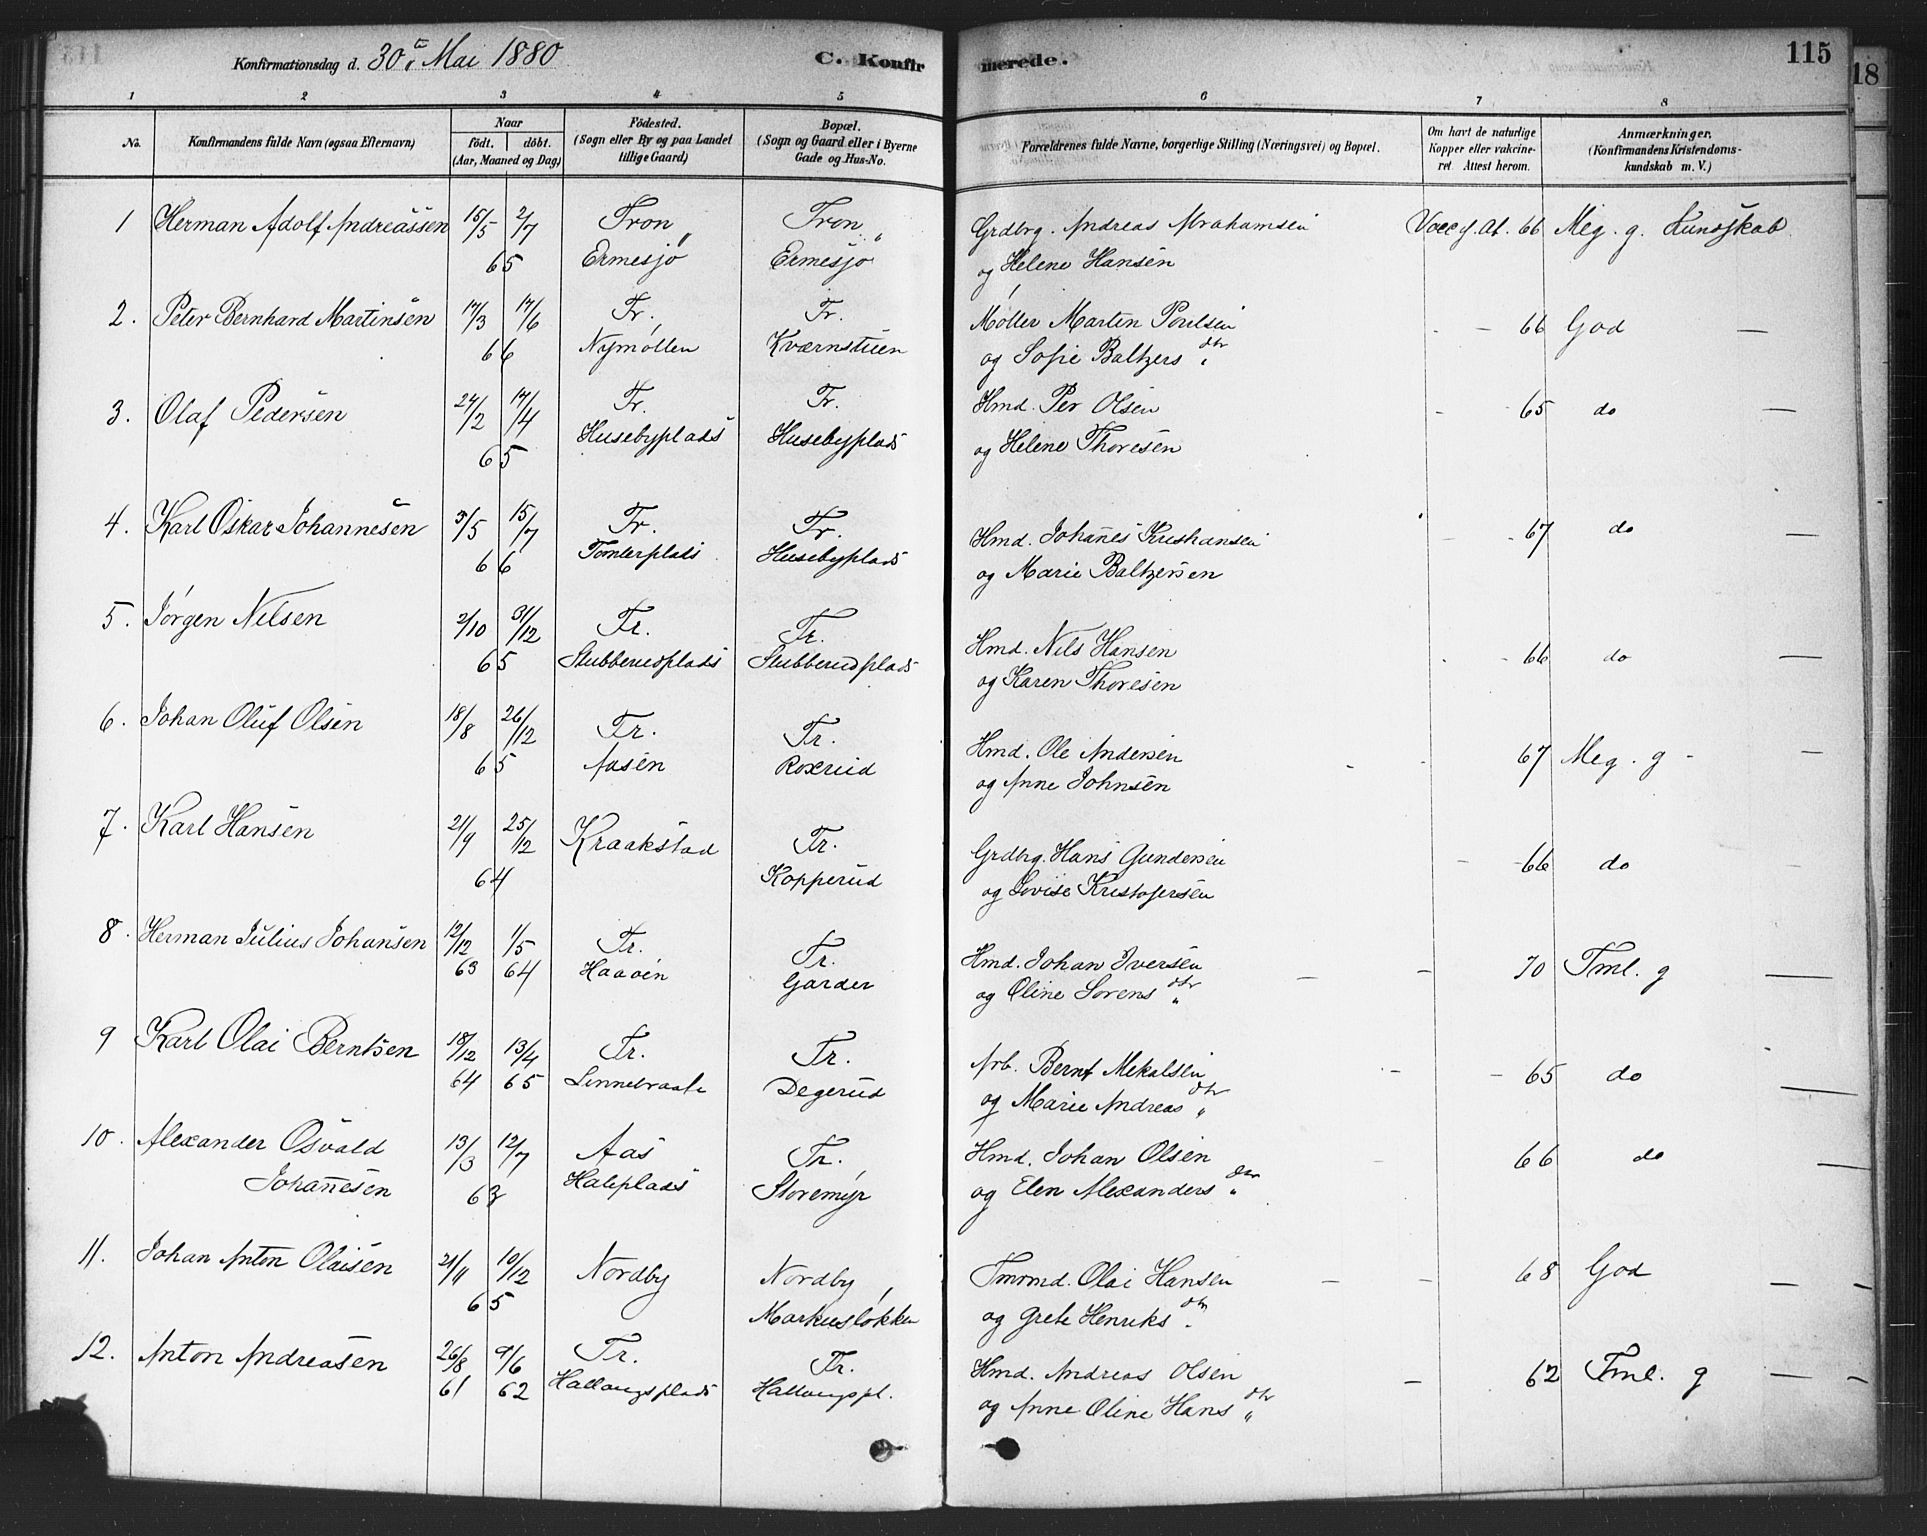 Konfirmationsdag d. 30. Mai 1880 C. Konfirmerede. 115
18
1 2 3 4 5 6 7 8
No. Konfirmandens fulde Navn (ogsaa Efternavn) Naar født. døbt. (Aar, Maaned og Dag) Fødested. (Sogn eller By og paa Landet tillige Gaard) Bopæl. (Sogn og Gaard eller i Byerne Gade og Hus-No. Forældrenes fulde Navne, borgerlige Stilling (Næringsvei) og Bopæl. Om havt de naturlige Kopper eller vakcineret. Attest herom. Anmærkninger. (Konfirmandens Kristendomskundskab m. V.)
1 Herman Adolf Andreassen 15/5 2/7 Fron Fron Grdbrg. Andreas Abrahamsen Vacc. At. 66 Meg. g. Kundskab
65 Ermesjø Ermesjø og Helene Hansen
2. Peter Bernhard Martinsen 17/3 17/6 Fr. Fr. Møller Martin Poulsen 66 God —
66 Nymøllen Kværnstuen og Sofie Baltzers dtr
3. Olaf Pedersen 24/2 17/4 Fr. Fr. Hmd. Per Olsen 65 do —
65 Husebyplads Husebyplads og Helene Thoresen
4. Karl Oskar Johannesen 3/5 15/7 Fr. Fr. Hmd. Johañes Kristiansen 67 do —
66 Tomterplads Husebyplads og Marie Baltzersen
5. Jørgen Nilsen 2/10 31/12 Fr. Fr. Hmd. Nils Hansen 66 do —
65 Stubberudplads Stubberudplads og Karen Thoresen
6. Johan Oluf Olsen 18/8 26/12 Fr. Fr. Hmd. Ole Andersen 67 Meg. g —
65 Aasen Roxrud og Anne Johnsen
7. Karl Hansen 21/9 25/12 Kraakstad Fr. Grdbrg. Hans Gundersen 66 do —
64 Kopperud og Lovise Kristofersen
8. Herman Julius Johansen 12/12 1/5 Fr. Fr. Hmd. Johan Iversen 70 Tml. g —
63 64 Haaøen Garder og Oline Sørens dtr „
9 Karl Olai Berntsen 18/12 13/4 Fr. Fr. Arb. Bernt Mekalsen 65 do —
64 65 Degerud og Marie Andreas dtr „
10. Alexander Osvald 13/3 12/7 Aas Fr. Hmd. Johan Olsen 66 do —
Johañesen 63 Haleplads Storemyr og Elen Alexanders dtr „
11. Johan Anton Olaisen 21/11 10/12 Nordby Nordby, Tmrmd. Olai Hansen 68 God —
65 Markusløkken og Grete Henriks dtr
12. Anton Andreasen 26/8 9/6 Fr. Fr. Hmd. Andreas Olsen 62 Tml. g —
61 62 Hallangsplads Hallangspl. og Anne Oline Hans dtr „